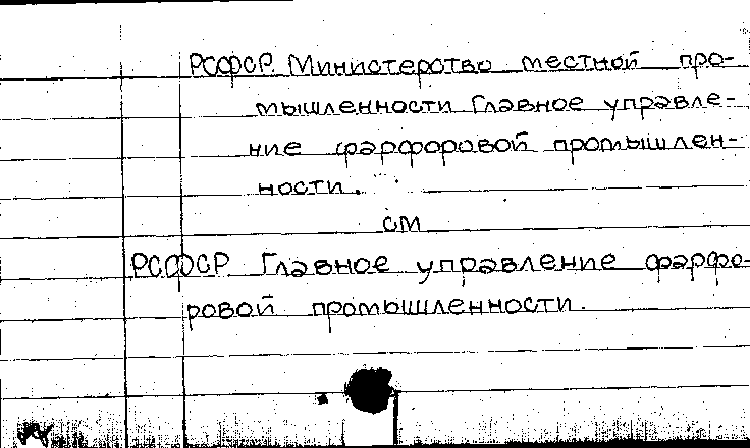 РСФСР. Министерство местной про-
мышленности Главное управле-
ние фарфоровой промышлен-
ности.
см
РСФСР. Главное управление фарфо-
ровой промышленности.